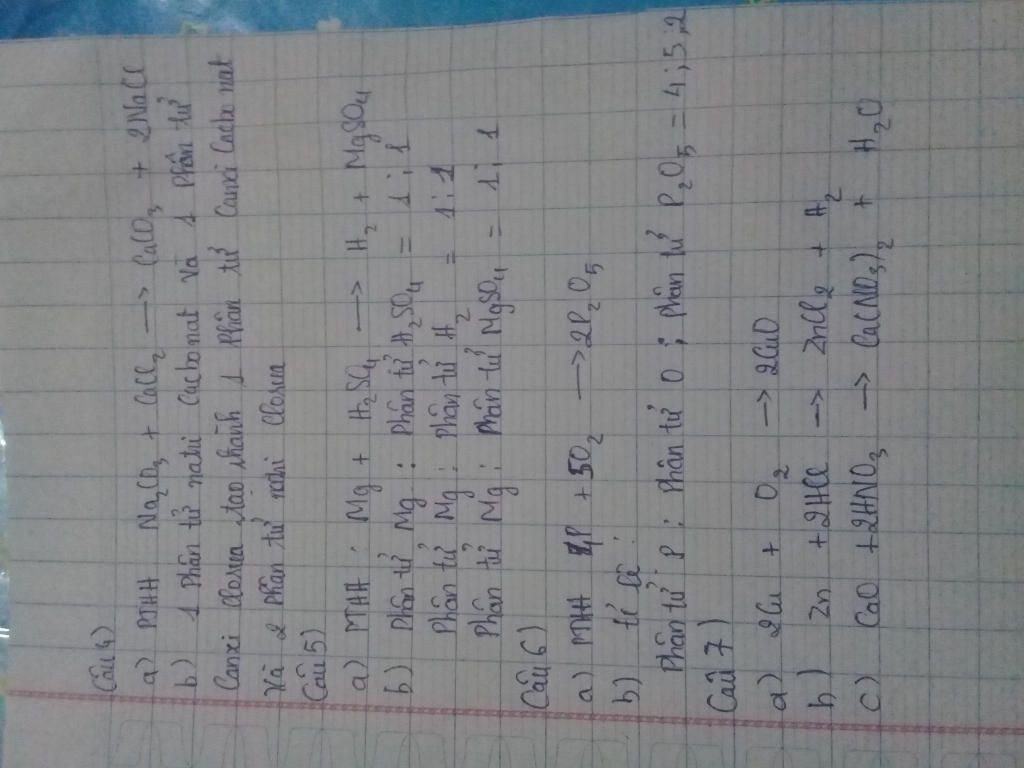 Câu 4)
a) PTHH Na2CO3 + CaCl2 → CaCO3 + 2NaCl
b) 1 Phân tử natri Cacbonat và 1 Phân tử
Canxi clorua tạo thành 1 Phân tử Canxi Cacbo nat
và 2 Phân tử natri clorua
Câu 5)
a) PTHH : Mg + H2SO4 → H2 + MgSO4
b) Phân tử Mg : Phân tử H2SO4 = 1 : 1
Phân tử Mg : Phân tử H2 = 1 : 1
Phân tử Mg : Phân tử MgSO4 = 1 : 1
Câu 6)
a) PTHH 4P + 5O2 → 2P2O5
b) tỉ lệ :
Phân tử P : Phân tử O ; Phân tử P2O5 = 4 ; 5 ; 2
Câu 7)
a) 2Cu + O2 → 2CuO
b) Zn + 2HCl → ZnCl2 + H2
c) CaO + 2HNO3 → Ca(NO3)2 + H2O